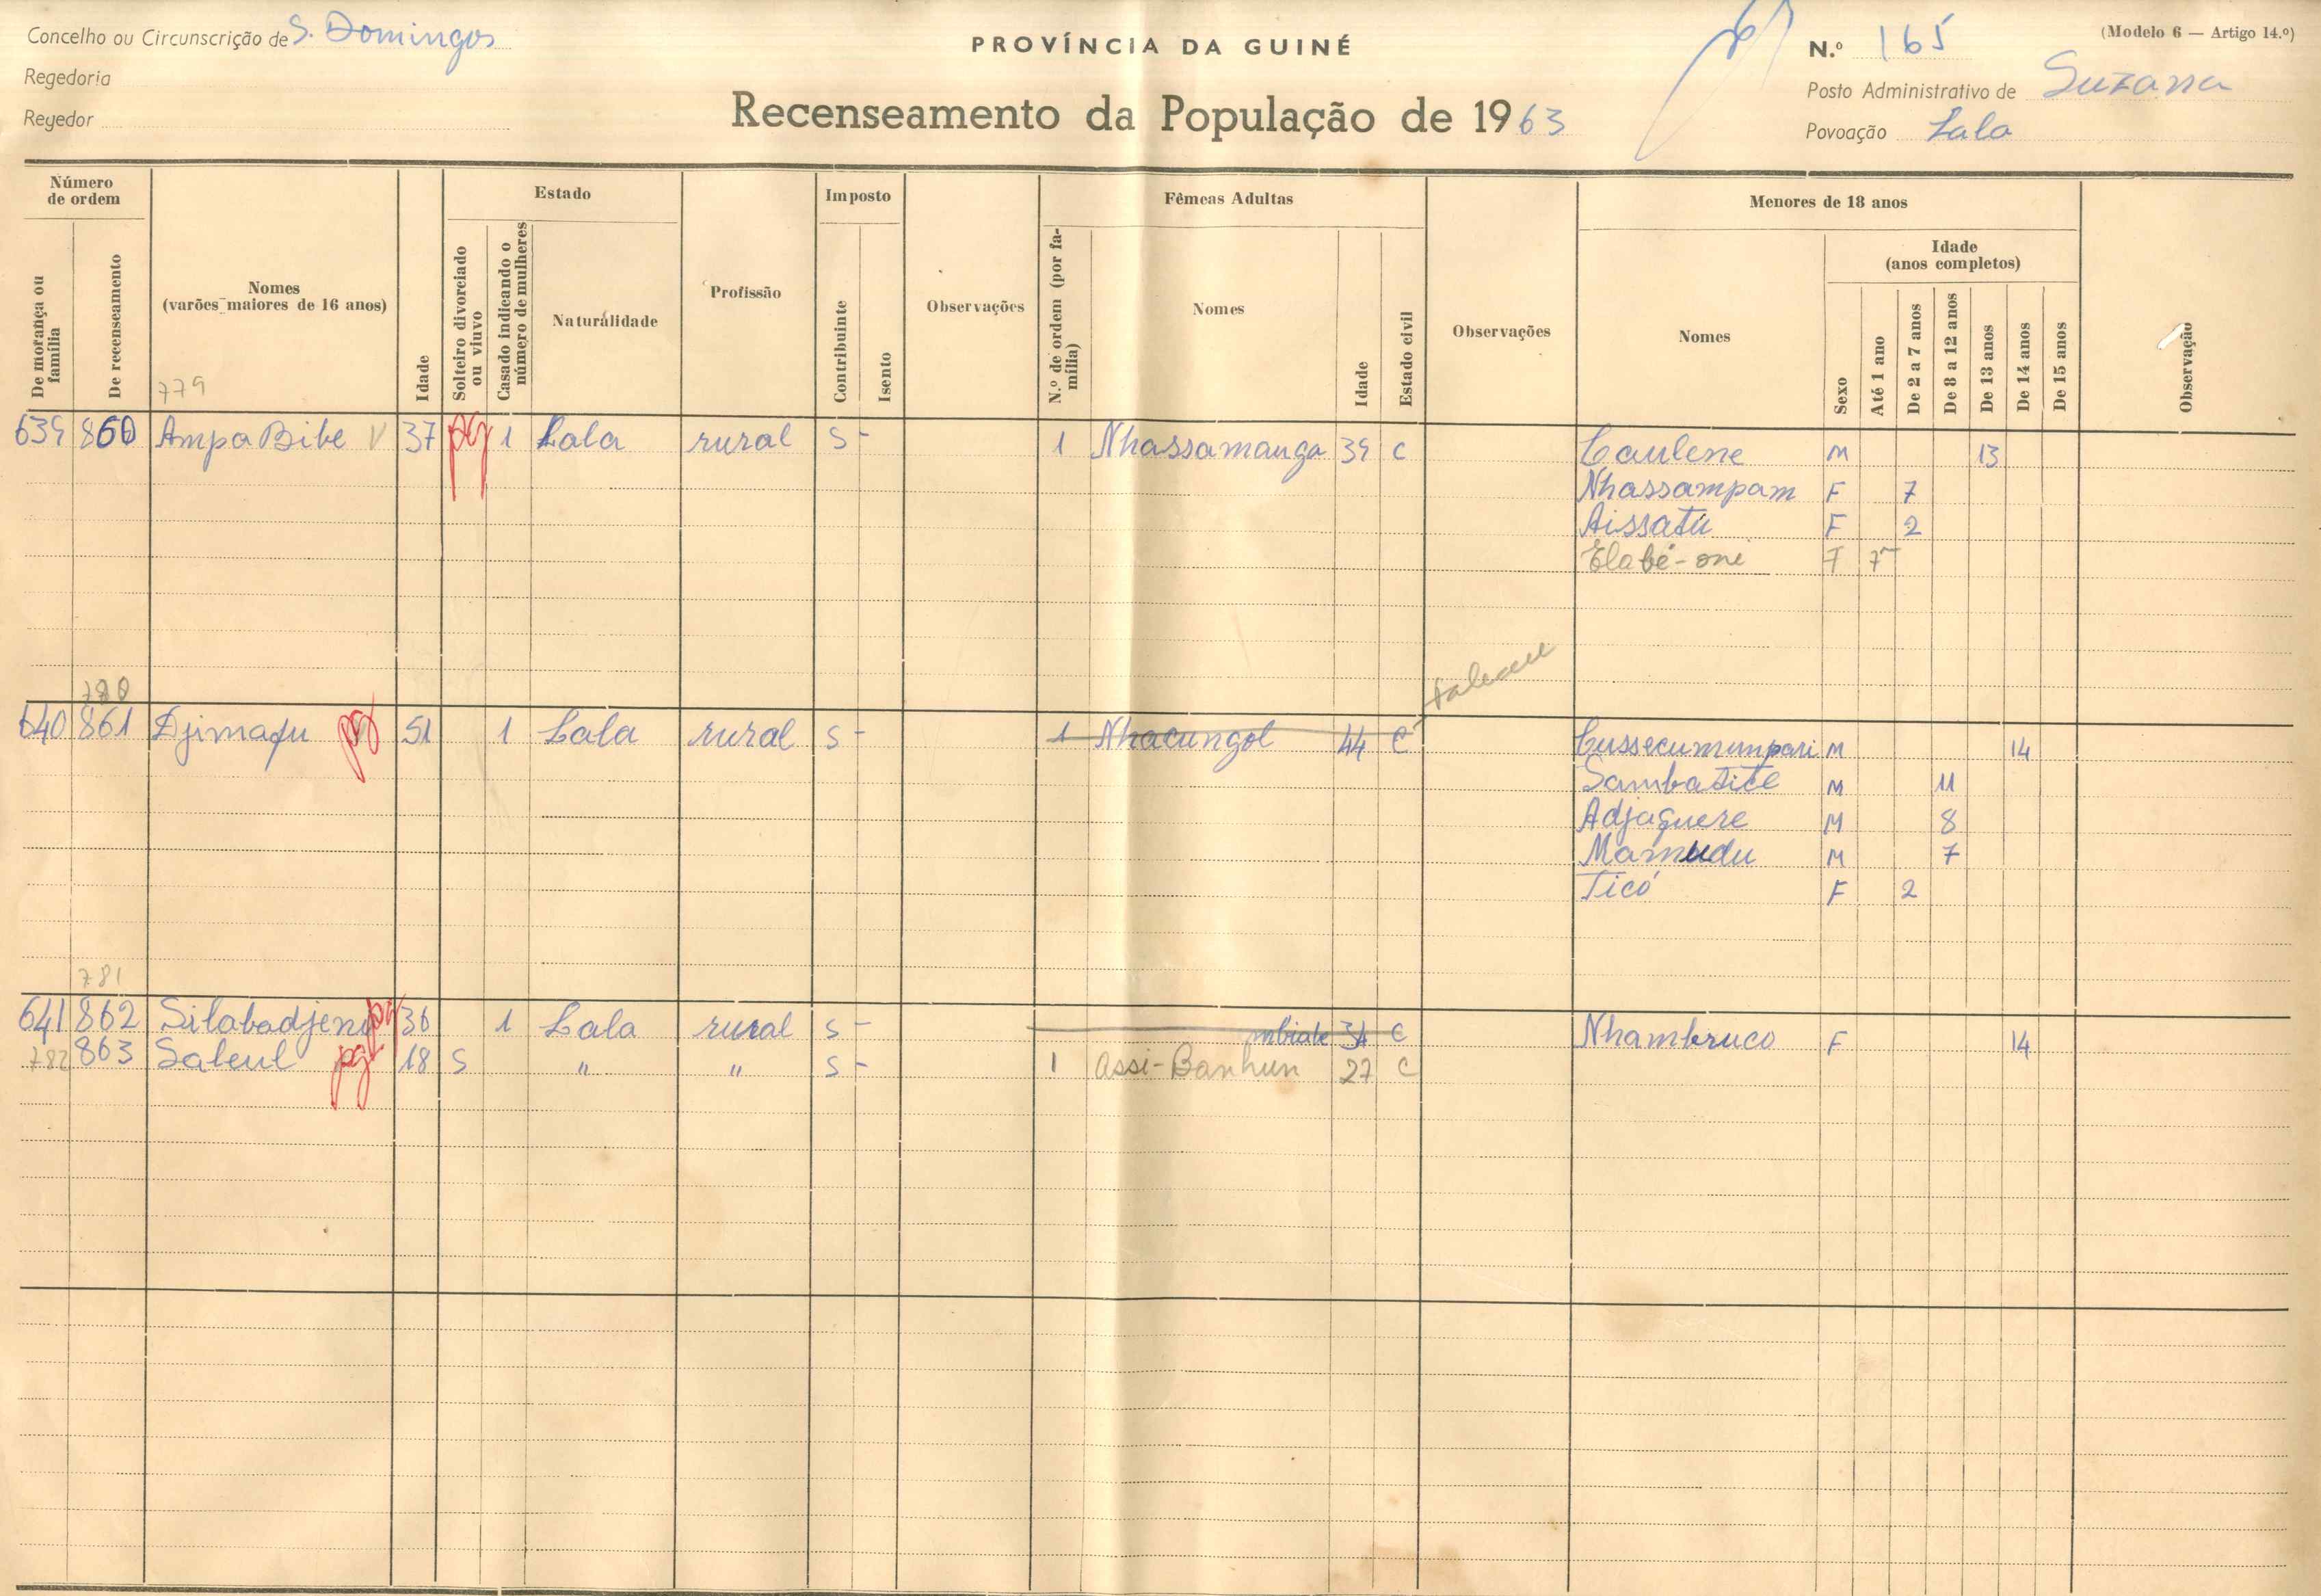 Concelho ou Circunscrição de S. Domingos
Regedoria
Regedor
PROVÍNCIA DA GUINÉ
Recenseamento da População de 1963
N.º 165
(Modelo 6 — Artigo 14.º)
Posto Administrativo de Suzana
Povoação Lala
Número de ordem
De morança ou família
De recenseamento
Nomes
(varões maiores de 16 anos)
779
Idade
Estado
Solteiro divorciado ou viuvo
Casado indicando o número de mulheres
Naturalidade
Profissão
Imposto
Contribuinte
Isento
Observações
Fêmeas Adultas
N.º de ordem (por família)
Nomes
Idade
Estado civil
Observações
Menores de 18 anos
Nomes
Sexo
Idade
(anos completos)
Até 1 ano
De 2 a 7 anos
De 8 a 12 anos
De 13 anos
De 14 anos
De 15 anos
Observação
639 860 Ampa Bibe V 37 pg 1 Lala rural S - 1 Nhassamanga 39 C Caulene M 13
Nhassampam F 7
Aissatu F 2
Elabé-oné F 7
780
640 861 pg 51 1 Lala rural S - 1 Nhacungol 44 C Cussecumunpari M 14
Sambatice M 11
Adjaguere M 8
Mamudu M 7
Ticó F 2
781
641 862 Silabadjeno pg 36 1 Lala rural S - mbiabe 34 C Nhambruco F 14
782 863 Saleul pg 18 S " " S - 1 Assi-Banhun 27 C